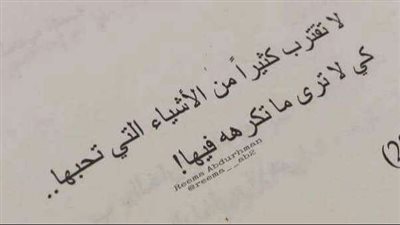 لا تقترب كثيراً من الأشياء التي تحبها..
كي لا ترى ما تكرهه فيها!
Reema Abdurhman
@reema__ab2